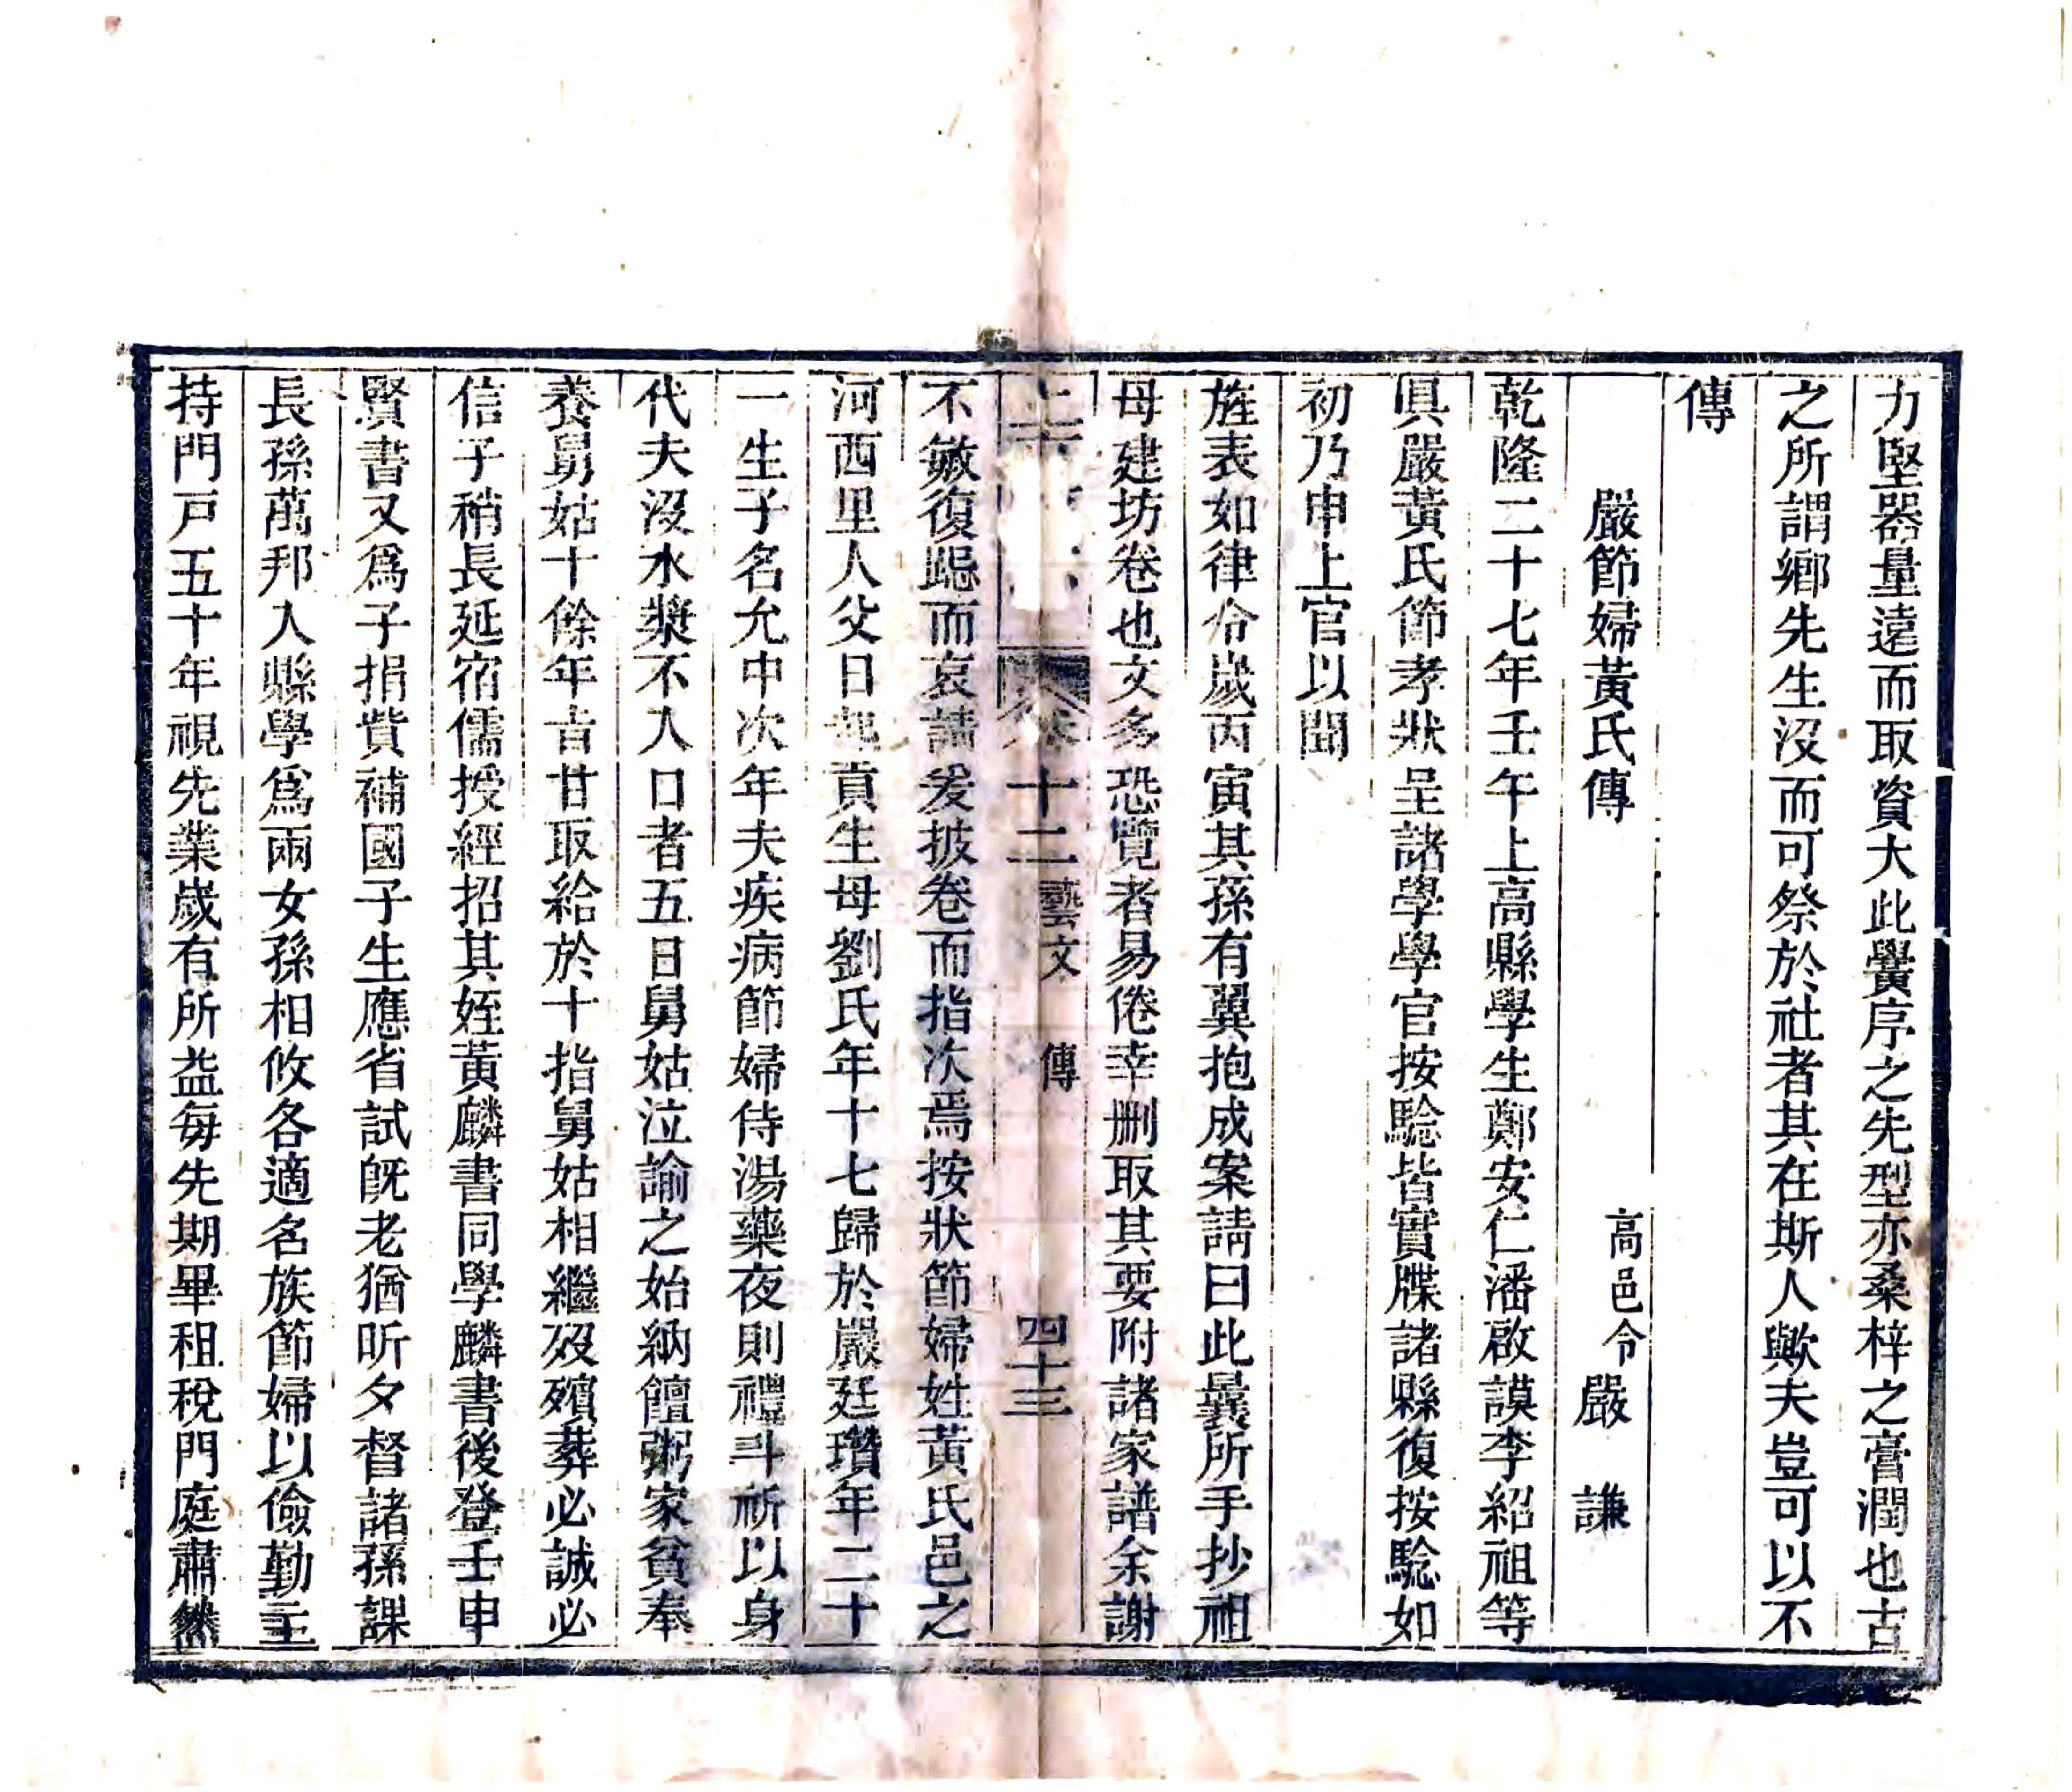 力堅器量遠而取資大此黌序之先型亦桑梓之膏潤也古
之所謂鄉先生沒而可祭於社者其在斯人歟夫豈可以不
傳
嚴節婦黃氏傳 高邑令嚴謙
乾隆二十七年壬午上高縣學生鄭安仁潘啟謨李紹祖等
具嚴黃氏節孝狀呈諸學學官按騐皆實牒諸縣復按騐如
初乃申上官以聞
旌表如律令歲丙寅其孫有翼抱成案請曰此曩所手抄祖
母建坊卷也文多恐覽者易倦幸删取其要附諸家譜余謝
上 卷十二 藝文 傳 四十三
不敏復跽而哀請爰披卷而指次焉按狀節婦姓黃氏邑之
河西里人父日 貢生母劉氏年十七歸於嚴廷瓚年二十
一生子名允中次年夫疾病節婦侍湯藥夜則禮斗祈以身
代夫沒水漿不入口者五日舅姑泣諭之始納饘粥家貧奉
養舅姑十餘年旨甘取給於十指舅姑相繼歿殯葬必誠必
信子稍長延宿儒授經招其姪黃麟書同學麟書後登壬申
賢書又爲子捐貲補國子生應省試旣老猶昕夕督諸孫課
長孫萬邦入縣學爲兩女孫相攸各適名族節婦以儉勤主
持門戸五十年視先業歲有所益每先期畢租稅門庭肅然